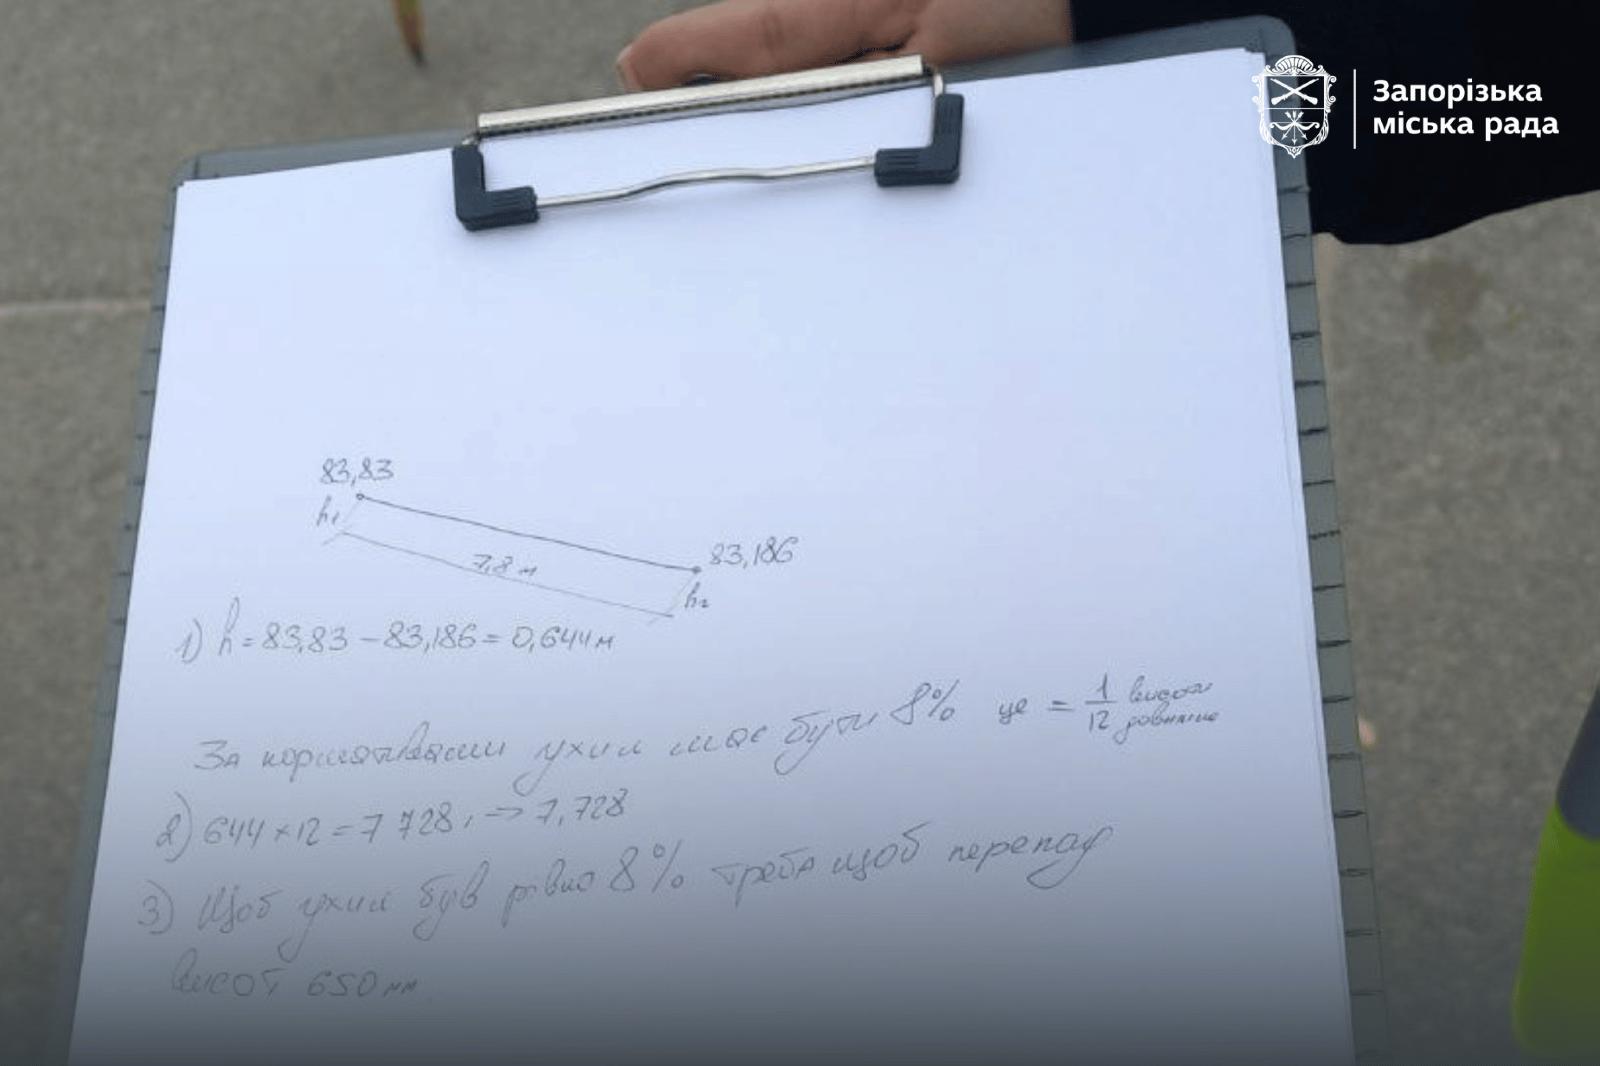 Запорізька
міська рада
83,83
h₁
7,8 м
83,186
h₂
1) h = 83,83 – 83,186 = 0,644 м
За нормативами ухил має бути 8% це = 1/12 висоти довжини
2) 644 × 12 = 7 728, → 7,728
3) Щоб ухил був рівно 8% треба щоб перепад
висот 650 мм